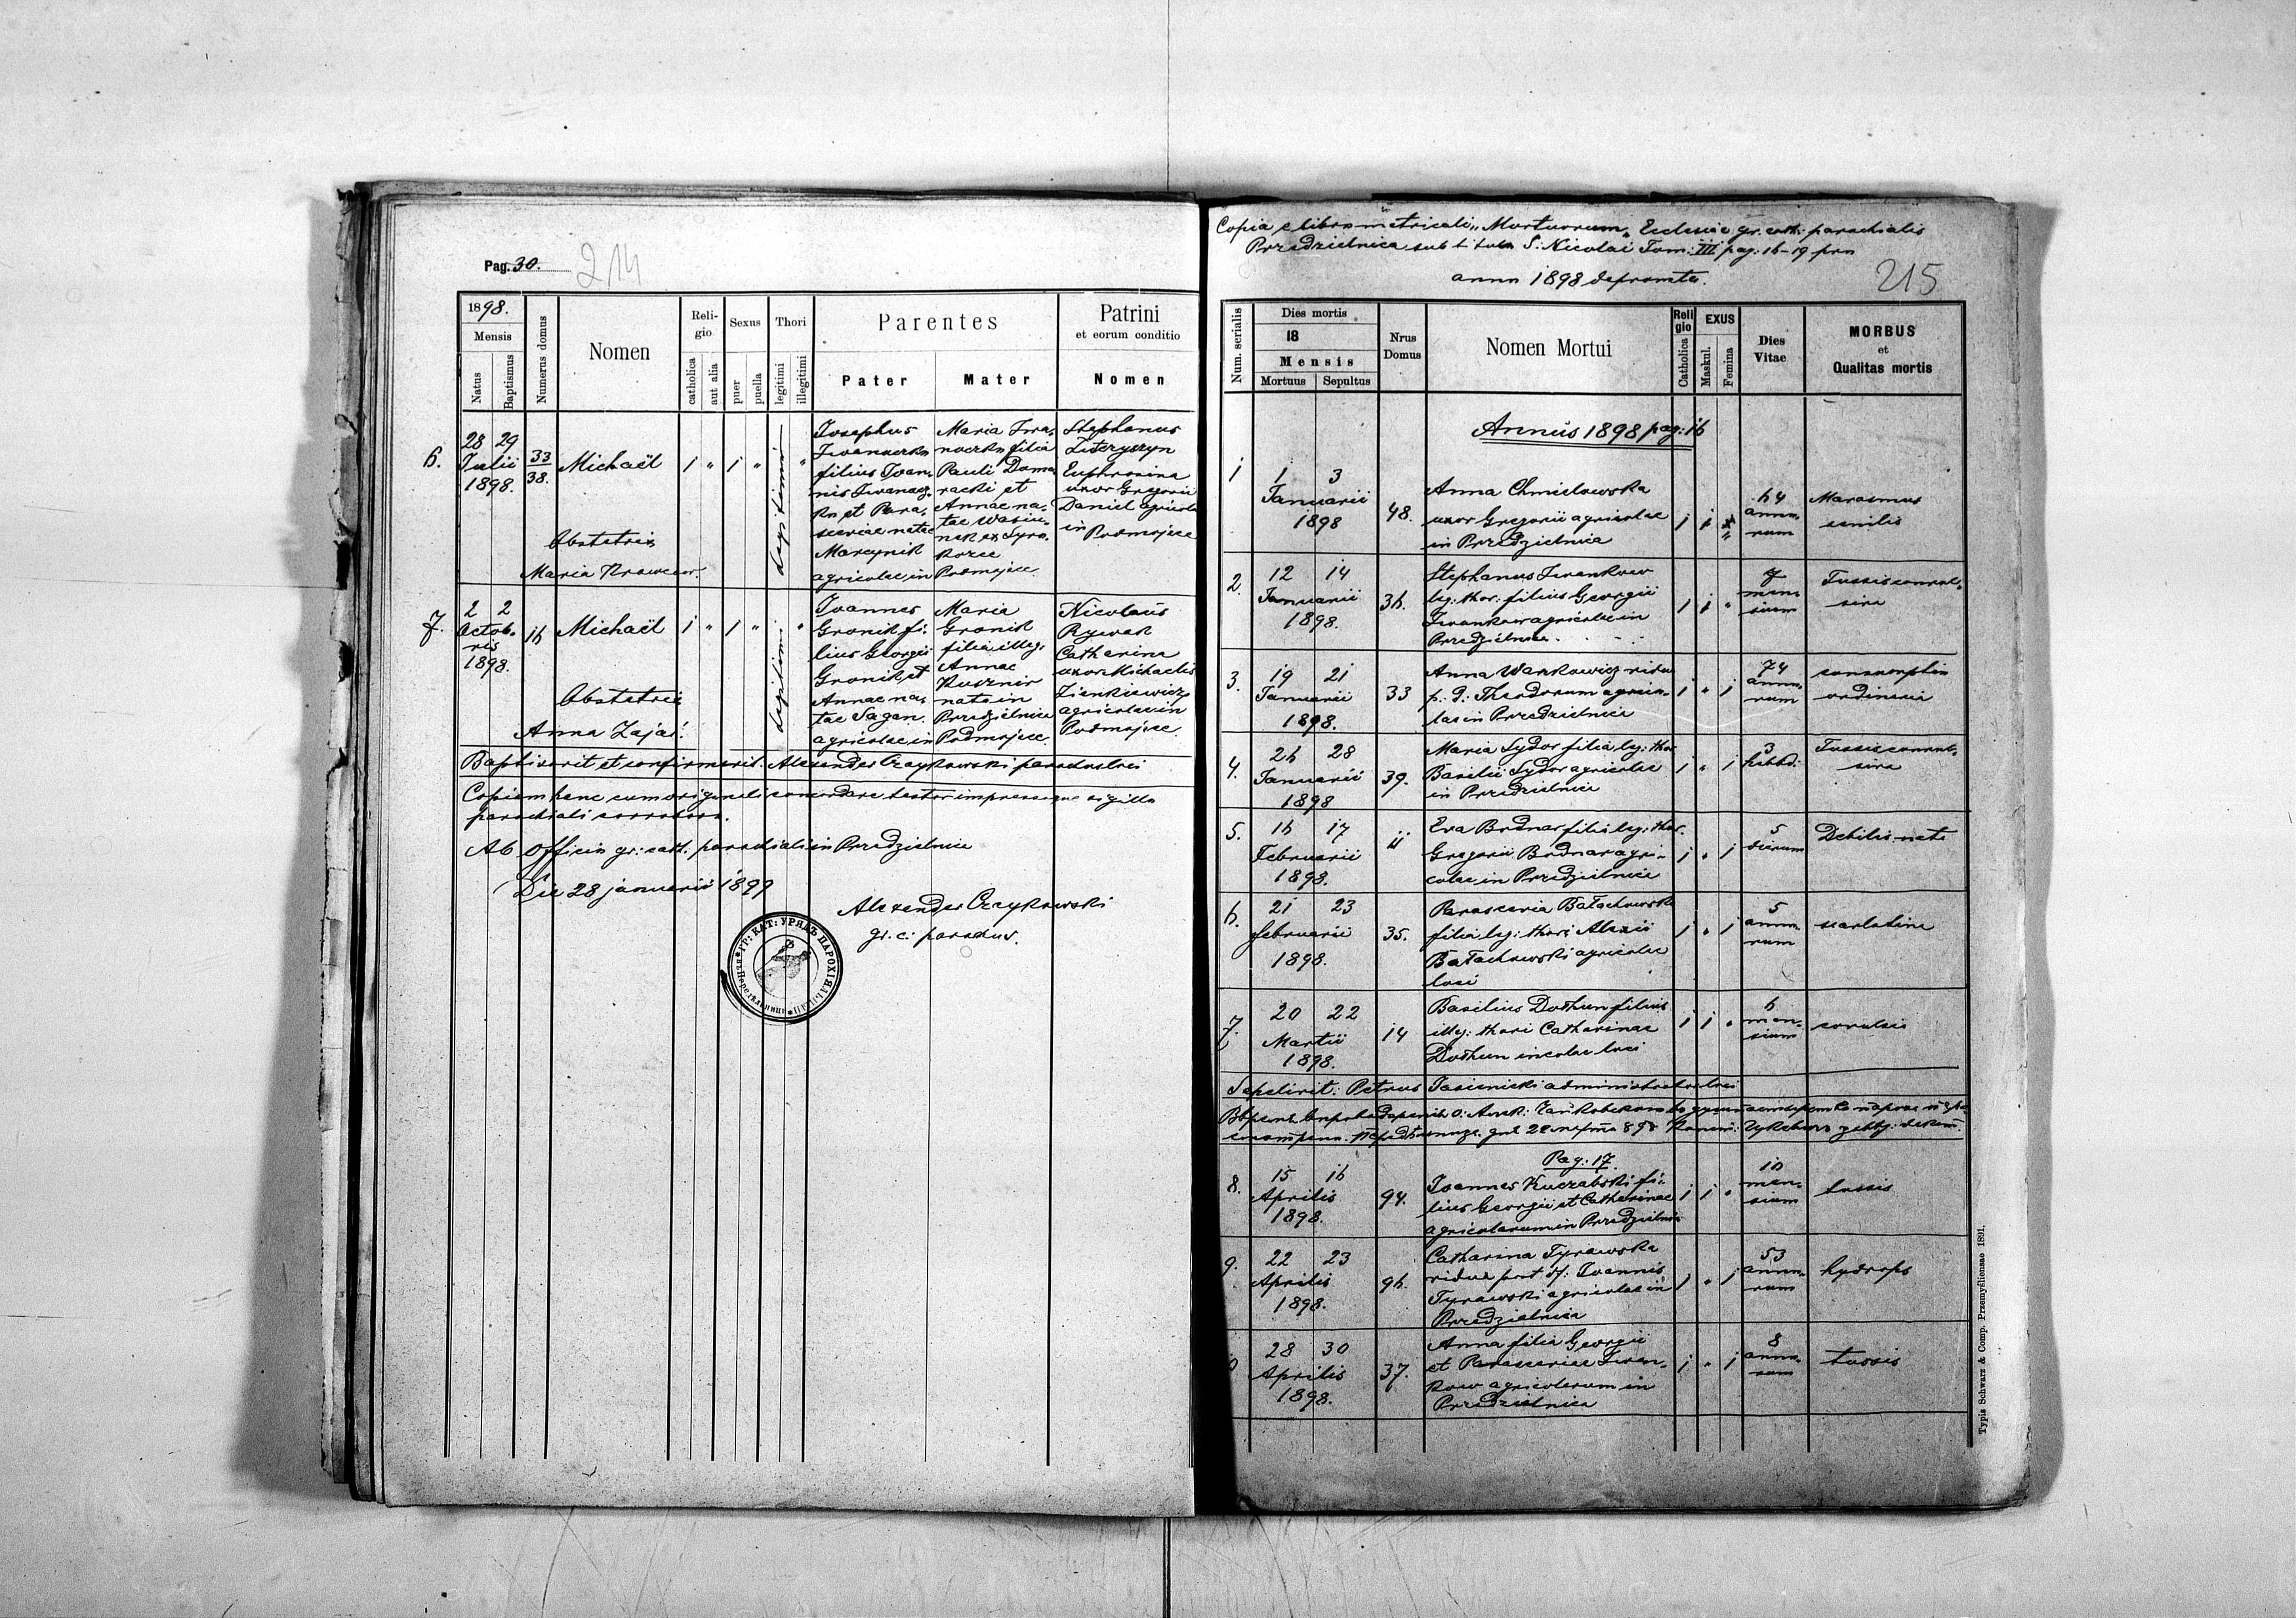 Pag. 30.
214
1898.
Mensis
Natus
Baptismus
Numerus domus
Nomen
Reli-
gio
catholica
aut alia
Sexus
puer
puella
Thori
legitimi
illegitimi
Parentes
Pater
Mater
Patrini
et eorum conditio
Nomen
6.
28 29
Julii
1898.
33
38.
Michaël
1 " 1 "
legitimi
"
Josephus
filius Joan-
nis
et Para-
sceviae natae
Marcynik
agricolae in
Maria Iwa-
filia
Pauli Doma-
racki et
Annae na-
tae
Podmojsce
Stephanus
Euphrosina
uxor Gregorii
Daniel agricola
in Podmojsce
Obstetrix
Maria
7.
2 2
Octob-
ris
1898.
16
Michaël
1 " 1 "
legitimi
"
Joannes
Gronik fi-
lius Georgii
Gronik et
Annae na-
tae Sagan
agricolae in
Maria
Gronik
filia illeg.
Annae
Kusznir
nata in
Przedzielnica
Podmojsce
Nicolaus
Rywak
Catharina
uxor Michaelis
Zienkiewicz
agricolae in
Podmojsce
Obstetrix
Anna Zając.
Baptisavit et confirmavit: Alexander Czaykowski parochus loci
Copiam hanc cum originali concordare testor impressoque sigillo
parochiali corroboro.
Ab Officio gr: cath. parochiali in Przedzielnica
Die 28 januarii 1899
Alexander Czaykowski
gr. c: parochus.
ГР: КАТ: УРЯДЪ ПАРОХІЯЛЬНЫЙ
Copia e libro metricali "Mortuorum" Ecclesiae gr. cath: parochialis
Przedzielnica sub titulo S: Nicolai Tom: III pag: 16-19 pro
anno 1898 depromta.
215
Num. serialis
Dies mortis
18
Mensis
Mortuus
Sepultus
Nrus
Domus
Nomen Mortui
Reli
gio
Catholica
EXUS
Maskul.
Femina
Dies
Vitae
MORBUS
et
Qualitas mortis
Annus 1898 pag: 16
1
1 3
Januarii
1898
48.
Anna Chmielowska
uxor Gregorii agricolae
in Przedzielnica
64
anno-
rum
Marasmus
senilis
2.
12 14
Januarii
1898.
36.
Stephanus Iwankow
leg: thor: filius Georgii
Iwankow agricolae in
Przedzielnica.
7
men-
sium
Tussis convul-
siva
3.
19 21
Januarii
1898.
33
Anna Warkowicz vidua
p. d: Theodorum agrico-
lae in Przedzielnica
74
anno-
rum
consumptio
ordinaria
4.
26 28
Januarii
1898
39.
Maria Sydor filia leg: thor.
Basilii Sydor agricolae
in Przedzielnica
3
hebd:
Tussis convul-
siva
5.
16 17
Februarii
1898.
11
Eva Bodnar filia leg: thor.
Gregorii Bodnar agri-
colae in Przedzielnica
5
dierum
Debilis nata
6.
21 23
februarii
1898.
35.
Parascevia Bałachowska
filia leg: thori Alexii
Bałachowski agricolae
loci
5
anno-
rum
scarlatina
7.
20 22
Martii
1898.
14
Basilius Dothun filius
illeg: thori Catharinae
Dothun incolae loci
6
men-
sium
convulsis
Sepelivit: Petrus Jasienicki administrator loci
Pag: 17.
8.
15 16
Aprilis
1898.
94.
Joannes Kuczabski fi-
lius Georgii et Catharinae
agricolarum in Przedzielnica
10
men-
sium
tussis
9.
22 23
Aprilis
1898.
96.
Catharina Tyrawska
vidua post df: Joannis
Tyrawski agricolae in
Przedzielnica
53
anno-
rum
hydrops
28 30
Aprilis
1898.
37.
Anna filia Georgii
et Parasceviae Iwan-
kow agricolarum in
Przedzielnica
8
anno-
rum
tussis
Typis Schwarz & Comp. Przemyśliensae 1891.